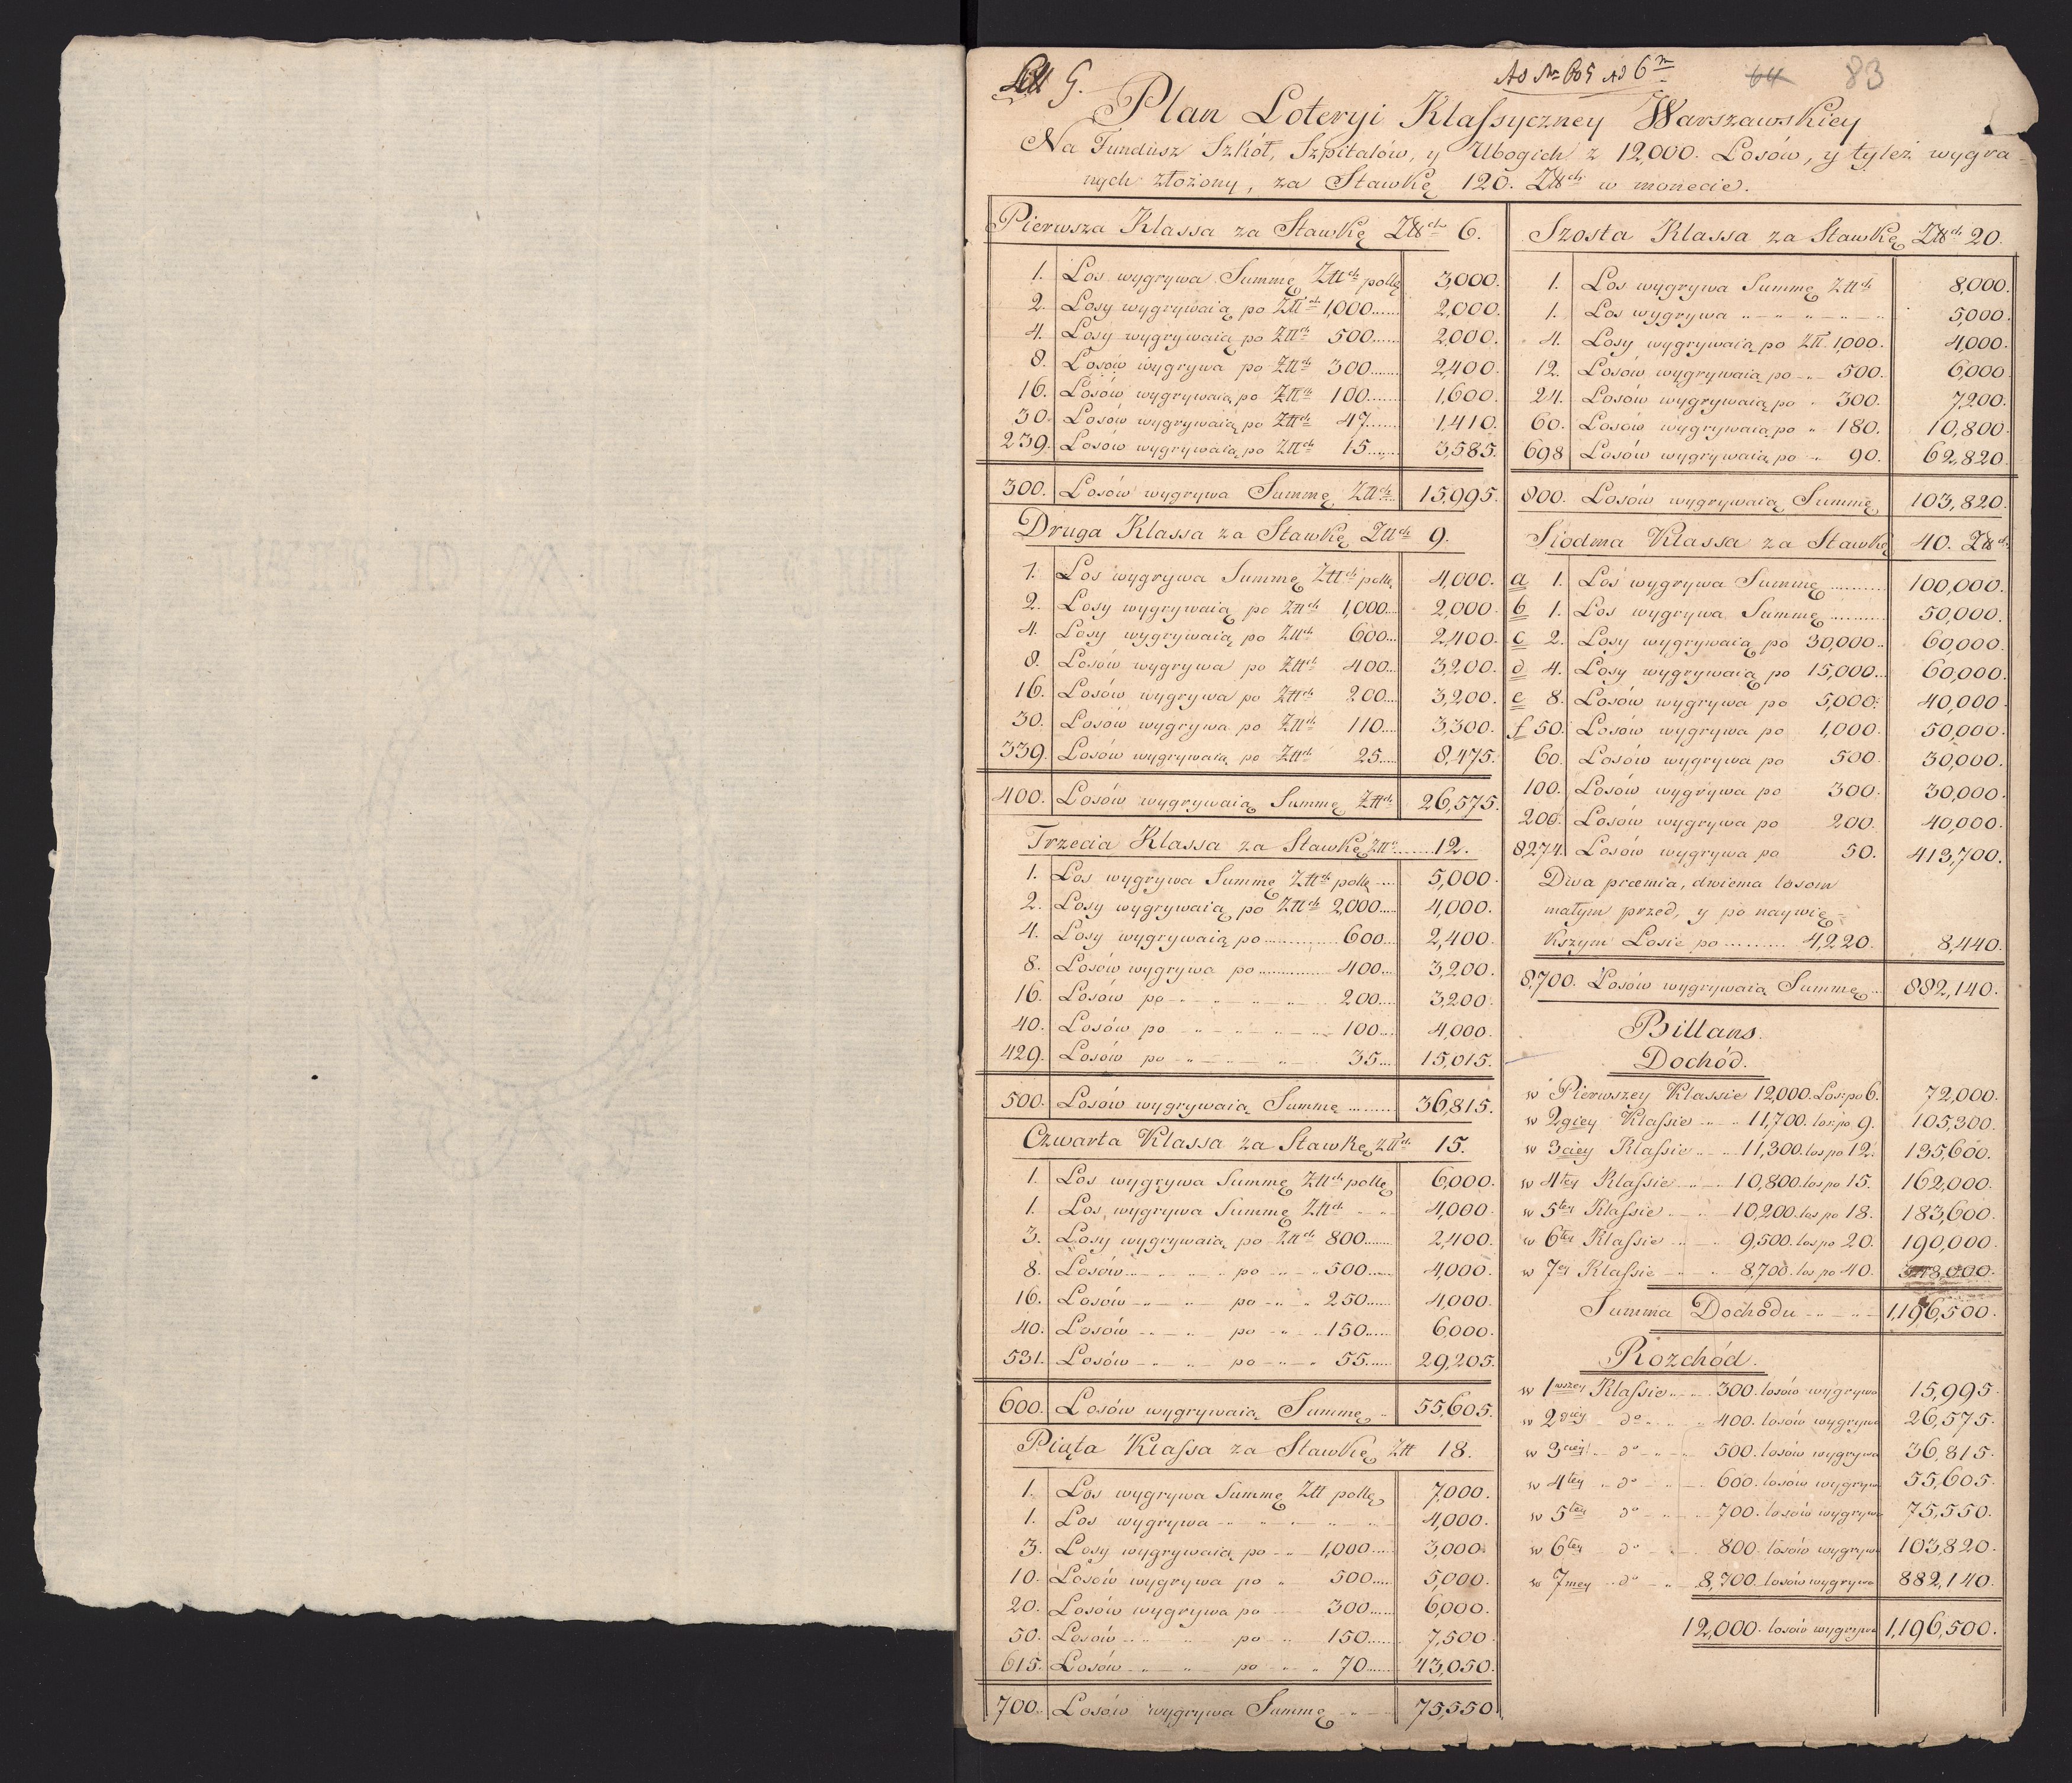 Litt G.
Ad Nr 605 Ad 6m
64 83
Plan Loteryi Klassyczney Warszawskiey
Na Fundusz Szkół, Szpitalów, y Ubogich z 12,000. Losów, y tyleż wygra-
nych złożony, za Stawkę 120. Złłch w monecie.
Pierwsza Klassa za Stawkę Złłch 6.
1. Los wygrywa Summę Złłch polłę 3,000.
2. Losy wygrywaią po Złłch 1,000...... 2,000.
4. Losy wygrywaią po Złłch 500...... 2,000.
8. Losów wygrywa po Złłch 300...... 2,400.
16. Losów wygrywaią po Złłch 100...... 1,600.
30. Losów wygrywaią po Złłch 47...... 1,410.
239. Losów wygrywaią po Złłch 15...... 3,585.
300. Losów wygrywa Summę Złłch 15,995.
Druga Klassa za Stawkę Złłch 9.
1. Los wygrywa Summę Złłch polłę 4,000.
2. Losy wygrywaią po Złłch 1,000.... 2,000.
4. Losy wygrywaią po Złłch 600.... 2,400.
8. Losów wygrywa po Złłch 400.... 3,200.
16. Losów wygrywa po Złłch 200.... 3,200.
30. Losów wygrywa po Złłch 110.... 3,300.
339. Losów wygrywaią po Złłch 25.... 8,475.
400. Losów wygrywaią Summę Złłch 26,575.
Trzecia Klassa za Stawkę Złł. ...... 12.
1. Los wygrywa Summę Złłch polłę .... 5,000.
2. Losy wygrywaią po Złłch 2,000.... 4,000.
4. Losy wygrywaią po ............ 600.... 2,400.
8. Losów wygrywa po ............ 400.... 3,200.
16. Losów po - " - " - 200.... 3,200.
40. Losów po - " - " - 100.... 4,000.
429. Losów po - " - " - 35.... 15,015.
500. Losów wygrywaią Summę ......... 36,815.
Czwarta Klassa za Stawkę Złłch 15.
1. Los wygrywa Summę Złłch polłę 6,000.
1. Los wygrywa Summę Złłch - " 4,000.
3. Losy wygrywaią po Złłch 800...... 2,400.
8. Losów - " - " po - " - 500...... 4,000.
16. Losów - " - " po - " - 250...... 4,000.
40. Losów - " - " po - " - 150...... 6,000.
531. Losów - " - " po - " - 55...... 29,205.
600. Losów wygrywaią Summę .. 55,605.
Piąta Klassa za Stawkę Złł 18.
1. Los wygrywa Summę Złł polłę 7,000.
1. Los wygrywa - " - " - " 4,000.
3. Losy wygrywaią po - " - 1,000..... 3,000.
10. Losów wygrywa po " 500..... 5,000.
20. Losów wygrywa po 300...... 6,000.
50. Losów - " - " po - " 150...... 7,500.
615. Losów - " - " po - " 70...... 43,050.
700. Losów wygrywa Summę - " - 75,550.
Szosta Klassa za Stawkę Złłch 20.
1. Los wygrywa Summę Złłch 8,000.
1. Los wygrywa " - " - " - " 5,000.
4. Losy wygrywaią po Złł 1,000. 4,000.
12. Losów wygrywaią po - " - 500. 6,000.
24. Losów wygrywaią po " 300. 7,200.
60. Losów wygrywaią po " 180. 10,800.
698 Losów wygrywaią po - " 90. 62,820.
800. Losów wygrywaią Summę 103,820.
Siodma Klassa za Stawkę 40. Złłch
a 1. Los wygrywa Summę .......... 100,000.
b 1. Los wygrywa Summę .......... 50,000.
c 2. Losy wygrywaią po 30,000.. 60,000.
d 4. Losy wygrywaią po 15,000... 60,000.
e 8. Losów wygrywa po 5,000. 40,000.
f 50. Losów wygrywa po 1,000. 50,000.
60. Losów wygrywa po 500. 30,000.
100. Losów wygrywa po 300. 30,000.
200. Losów wygrywa po 200. 40,000.
8274. Losów wygrywa po 50. 413,700.
Dwa præmia, dwiema losom
małym przed, y po naywię-
kszym Losie po .......... 4,220. 8,440.
8,700. Losów wygrywaią Summę .. 882,140.
Billans.
Dochód.
w Pierwszey Klassie 12,000. Los: po 6. 72,000.
w 2giey Klassie " - 11,700. los: po 9. 105,300.
w 3ciey Klassie " - 11,300. los po 12. 135,600.
w 4tey Klassie " - 10,800. los po 15. 162,000.
w 5tey Klassie " - 10,200. los po 18. 183,600.
w 6tey Klassie " - 9,500. los po 20. 190,000.
w 7ey Klassie " - 8,700. los po 40. 348,000.
Summa Dochodu - " - " 1,196,500.
Rozchód.
w 1wszey Klassie " - 300. losów wygrywa 15,995.
w 2giey " do " - 400. losów wygrywa 26,575.
w 3ciey " do " - 500. losów wygrywa 36,815.
w 4tey " do " - 600. losów wygrywa 55,605.
w 5tey do " - 700. losów wygrywa 75,550.
w 6tey do " - 800. losów wygrywa 103,820.
w 7mey " do - " 8,700. losów wygrywa 882,140.
12,000. losów wygrywa 1,196,500.